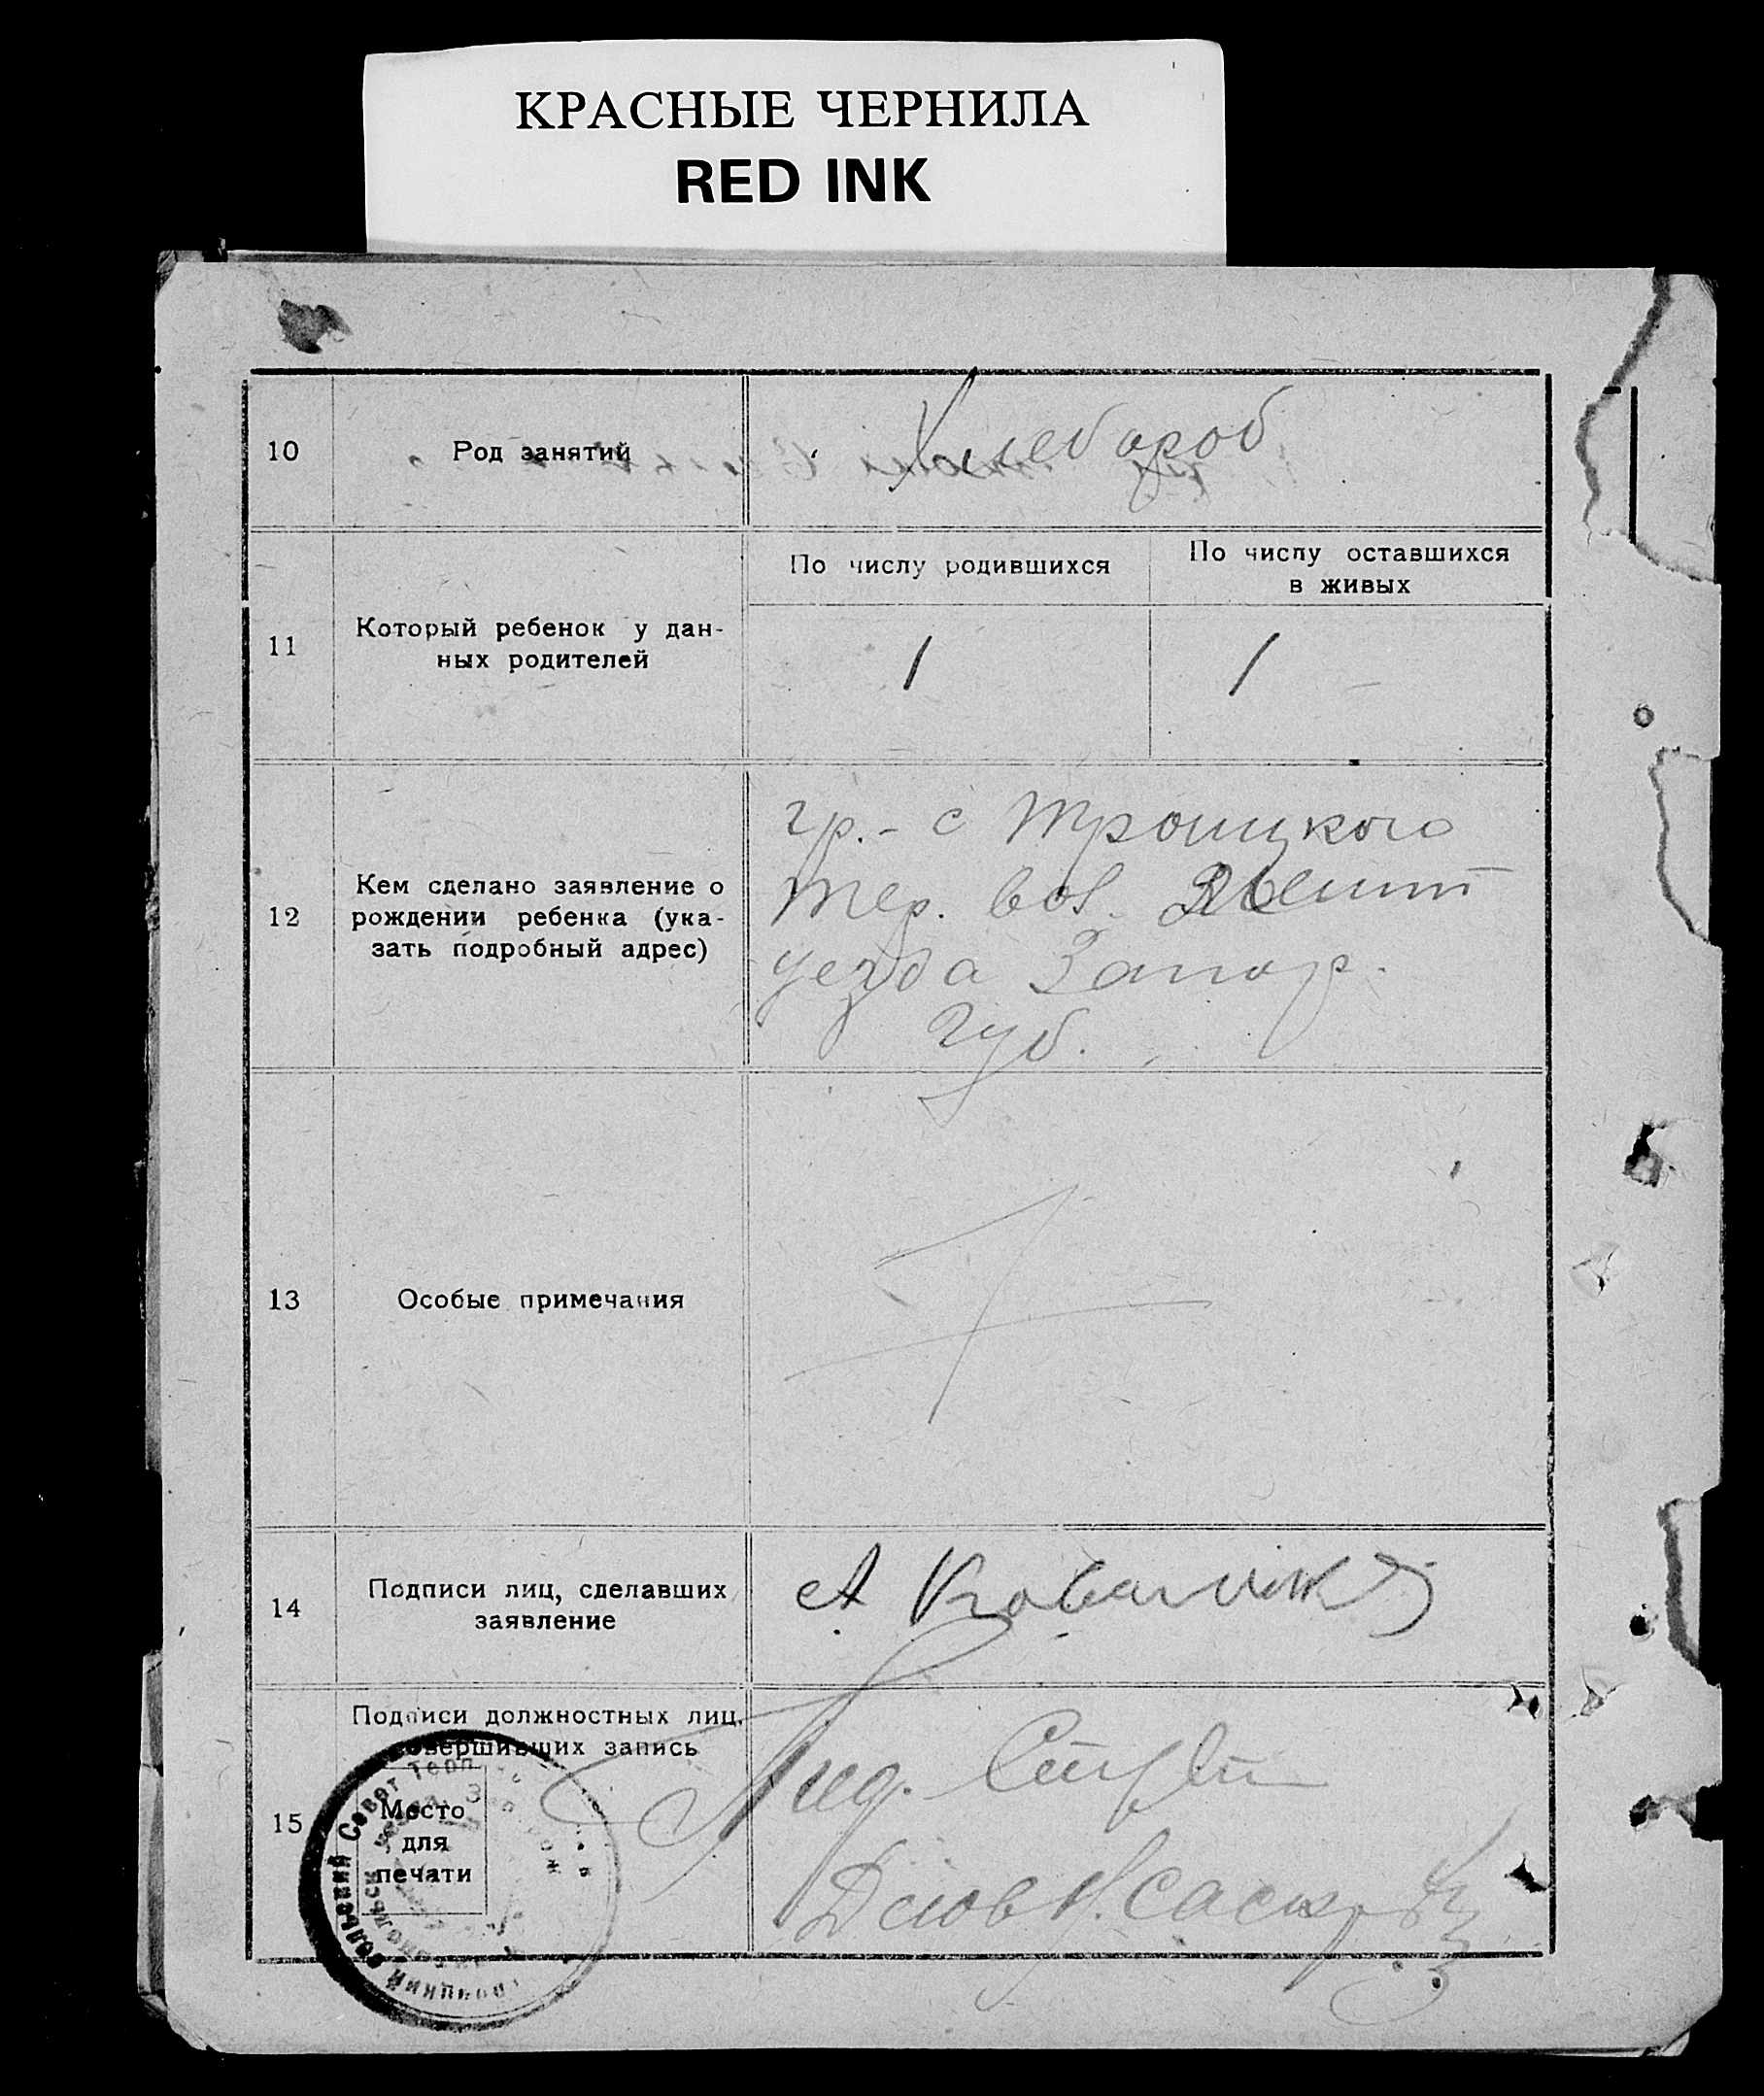 КРАСНЫЕ ЧЕРНИЛА
RED INK
10
Род занятий
Хлебороб
11
Который ребенок у дан-
ных родителей
По числу родившихся
По числу оставшихся
в живых
1
1
12
Кем сделано заявление о
рождении ребенка (ука-
зать подробный адрес)
гр.- с Троицкого
Тер. вол.
уезда Запор.
Губ.
13
Особые примечания
14
Подписи лиц, сделавших
заявление
А
15
Подписи должностных лиц,
совершивших запись
Место
для
печати